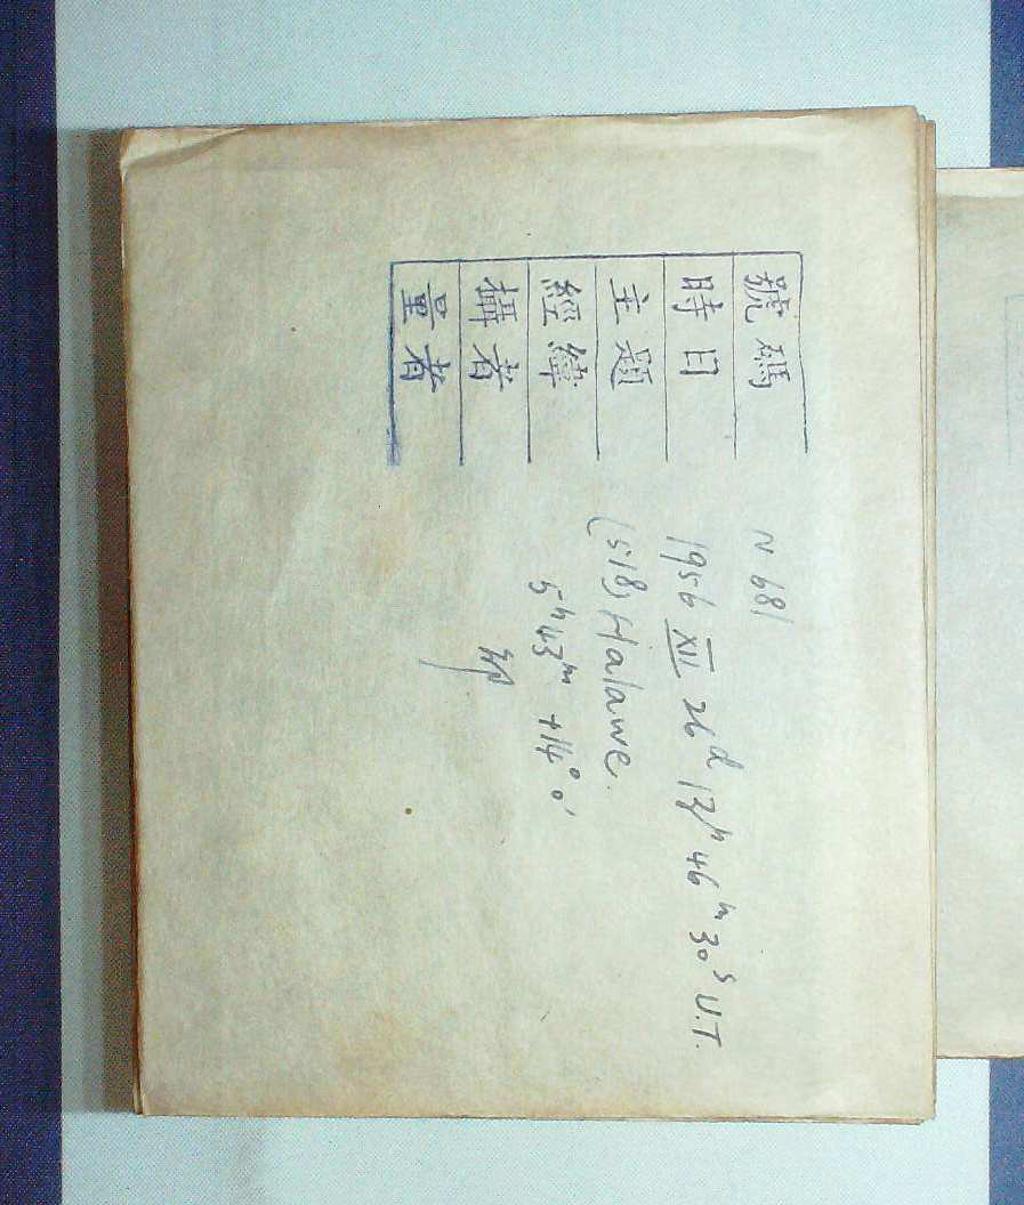 號碼 N 681
時日 1956 XII 26ᵈ 13ʰ 46ᵐ 30ˢ U.T.
主題 (518) Halawe.
經緯 5ʰ43ᵐ +14°0'
攝者
量者